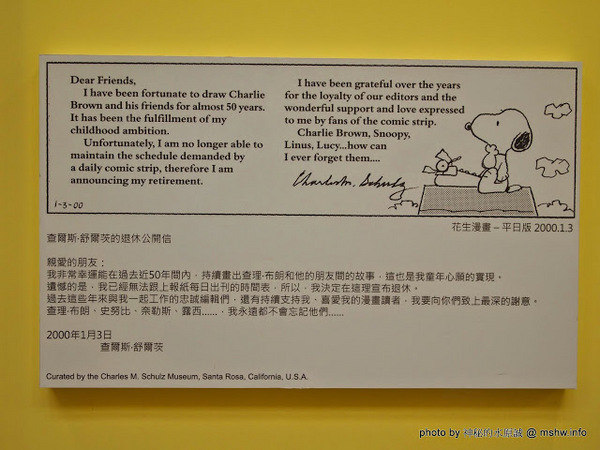 Dear Friends,
I have been fortunate to draw Charlie
Brown and his friends for almost 50 years.
It has been the fulfillment of my
childhood ambition.
Unfortunately, I am no longer able to
maintain the schedule demanded by
a daily comic strip, therefore I am
announcing my retirement.
1-3-00
I have been grateful over the years
for the loyalty of our editors and the
wonderful support and love expressed
to me by fans of the comic strip.
Charlie Brown, Snoopy,
Linus, Lucy...how can
I ever forget them....
Charles M. Schulz
花生漫畫 – 平日版 2000.1.3
查爾斯·舒爾茨的退休公開信
親愛的朋友：
我非常幸運能在過去近50年間內，持續畫出查理·布朗和他的朋友間的故事，這也是我童年心願的實現。
遺憾的是，我已經無法跟上報紙每日出刊的時間表，所以，我決定在這理宣布退休。
過去這些年來與我一起工作的忠誠編輯們，還有持續支持我、喜愛我的漫畫讀者，我要向你們致上最深的謝意。
查理·布朗、史努比、奈勒斯、露西......，我永遠都不會忘記他們......
2000年1月3日
查爾斯·舒爾茨
Curated by the Charles M. Schulz Museum, Santa Rosa, California, U.S.A.
photo by 神秘的水瓶誠 @ mshw.info